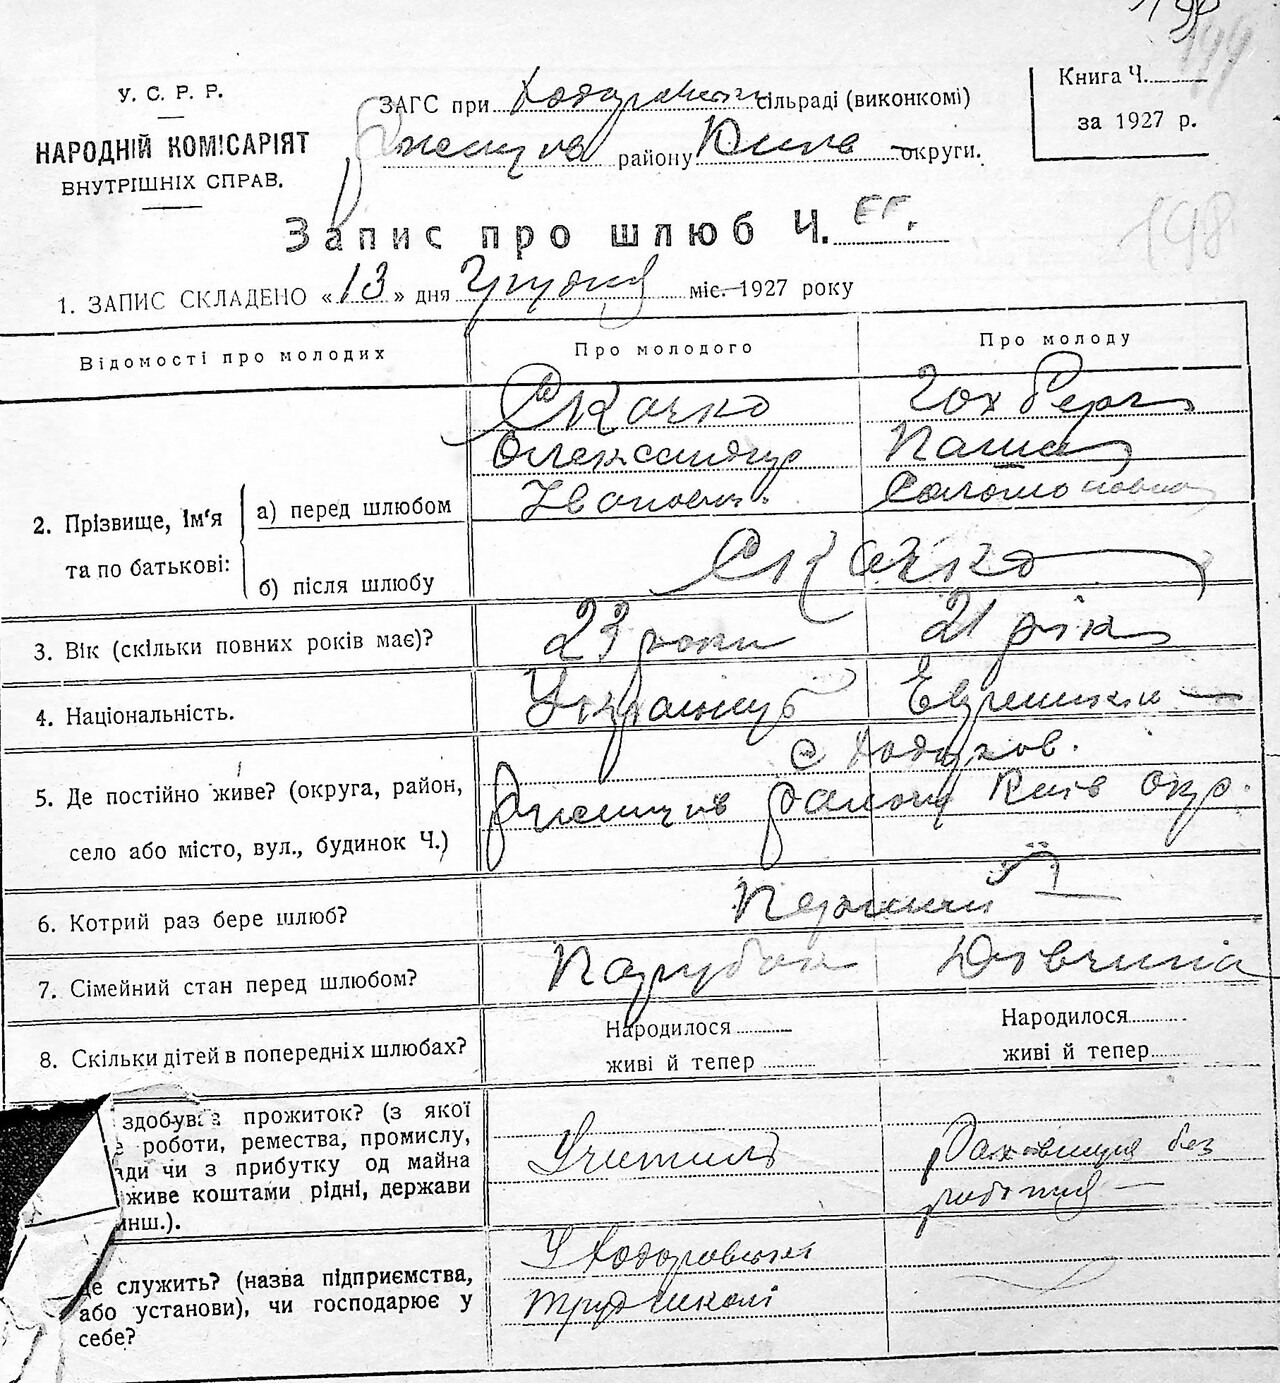 199
198
У. С. Р. Р.
НАРОДНІЙ КОМІСАРІЯТ
ВНУТРІШНІХ СПРАВ.
ЗАГС при Ходорівській сільраді (виконкомі)
Ржищів району Київ округи.
Книга Ч.
за 1927 р.
Запис про шлюб Ч.
1. ЗАПИС СКЛАДЕНО «13» дня Грудня міс. 1927 року
Відомості про молодих
Про молодого
Про молоду
2. Прізвище, Ім'я та по батькові:
а) перед шлюбом
Скачко
Олександр
Іванович
Гохберг
Паша
Соломоновна
б) після шлюбу
Скачко
3. Вік (скільки повних років має)?
23 роки
21 рік
4. Національність.
Українець
Еврейка
5. Де постійно живе? (округа, район,
село або місто, вул., будинок Ч.)
с Ходоров.
Ржищів району Київ окр.
6. Котрий раз бере шлюб?
Перший
7. Сімейний стан перед шлюбом?
Парубок
Дівчина
8. Скільки дітей в попередніх шлюбах?
Народилося
живі й тепер
Народилося
живі й тепер
здобував прожиток? (з якої
роботи, ремества, промислу,
ди чи з прибутку од майна
живе коштами рідні, держави
инш.).
Учитель
без
роботня
де служить? (назва підприємства,
або установи), чи господарює у
себе?
У Ходоровській
трудшколі